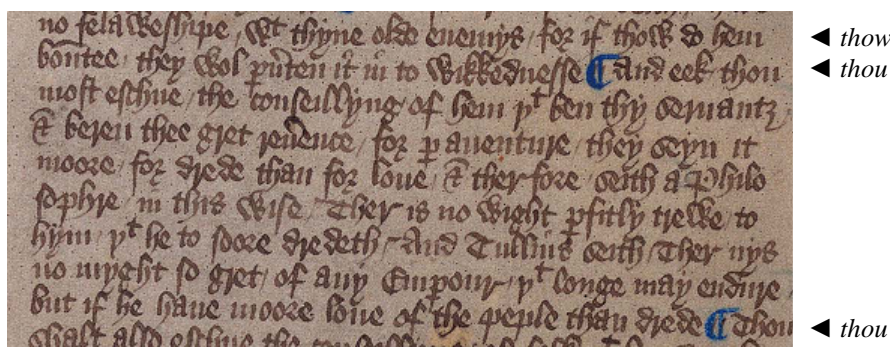 no felaweshipe / wt thyne olde enemys / for if thow do hem ◄ thow
bōntee / they wol pu̅ten it in to wikkednesse ¶ And eek thou ◄ thou
most eschue / the conseillyng / of hem þt ben thy seruantz /
& beren thee gret reu̅ence / for ꝑauenture / they seyn it
moore / for drede than for loue / & therfore seith a Philo
sophre / in this wise / Ther is no wight ꝑfitly trewe / to
hym / þt he to soore dredeth / And Tullius seith / Ther nys
no myght so gret / of any Emꝑour / þt longe may endure /
but if he haue moore loue of the peple than drede ¶ Thou ◄ thou
shalt also eschue the